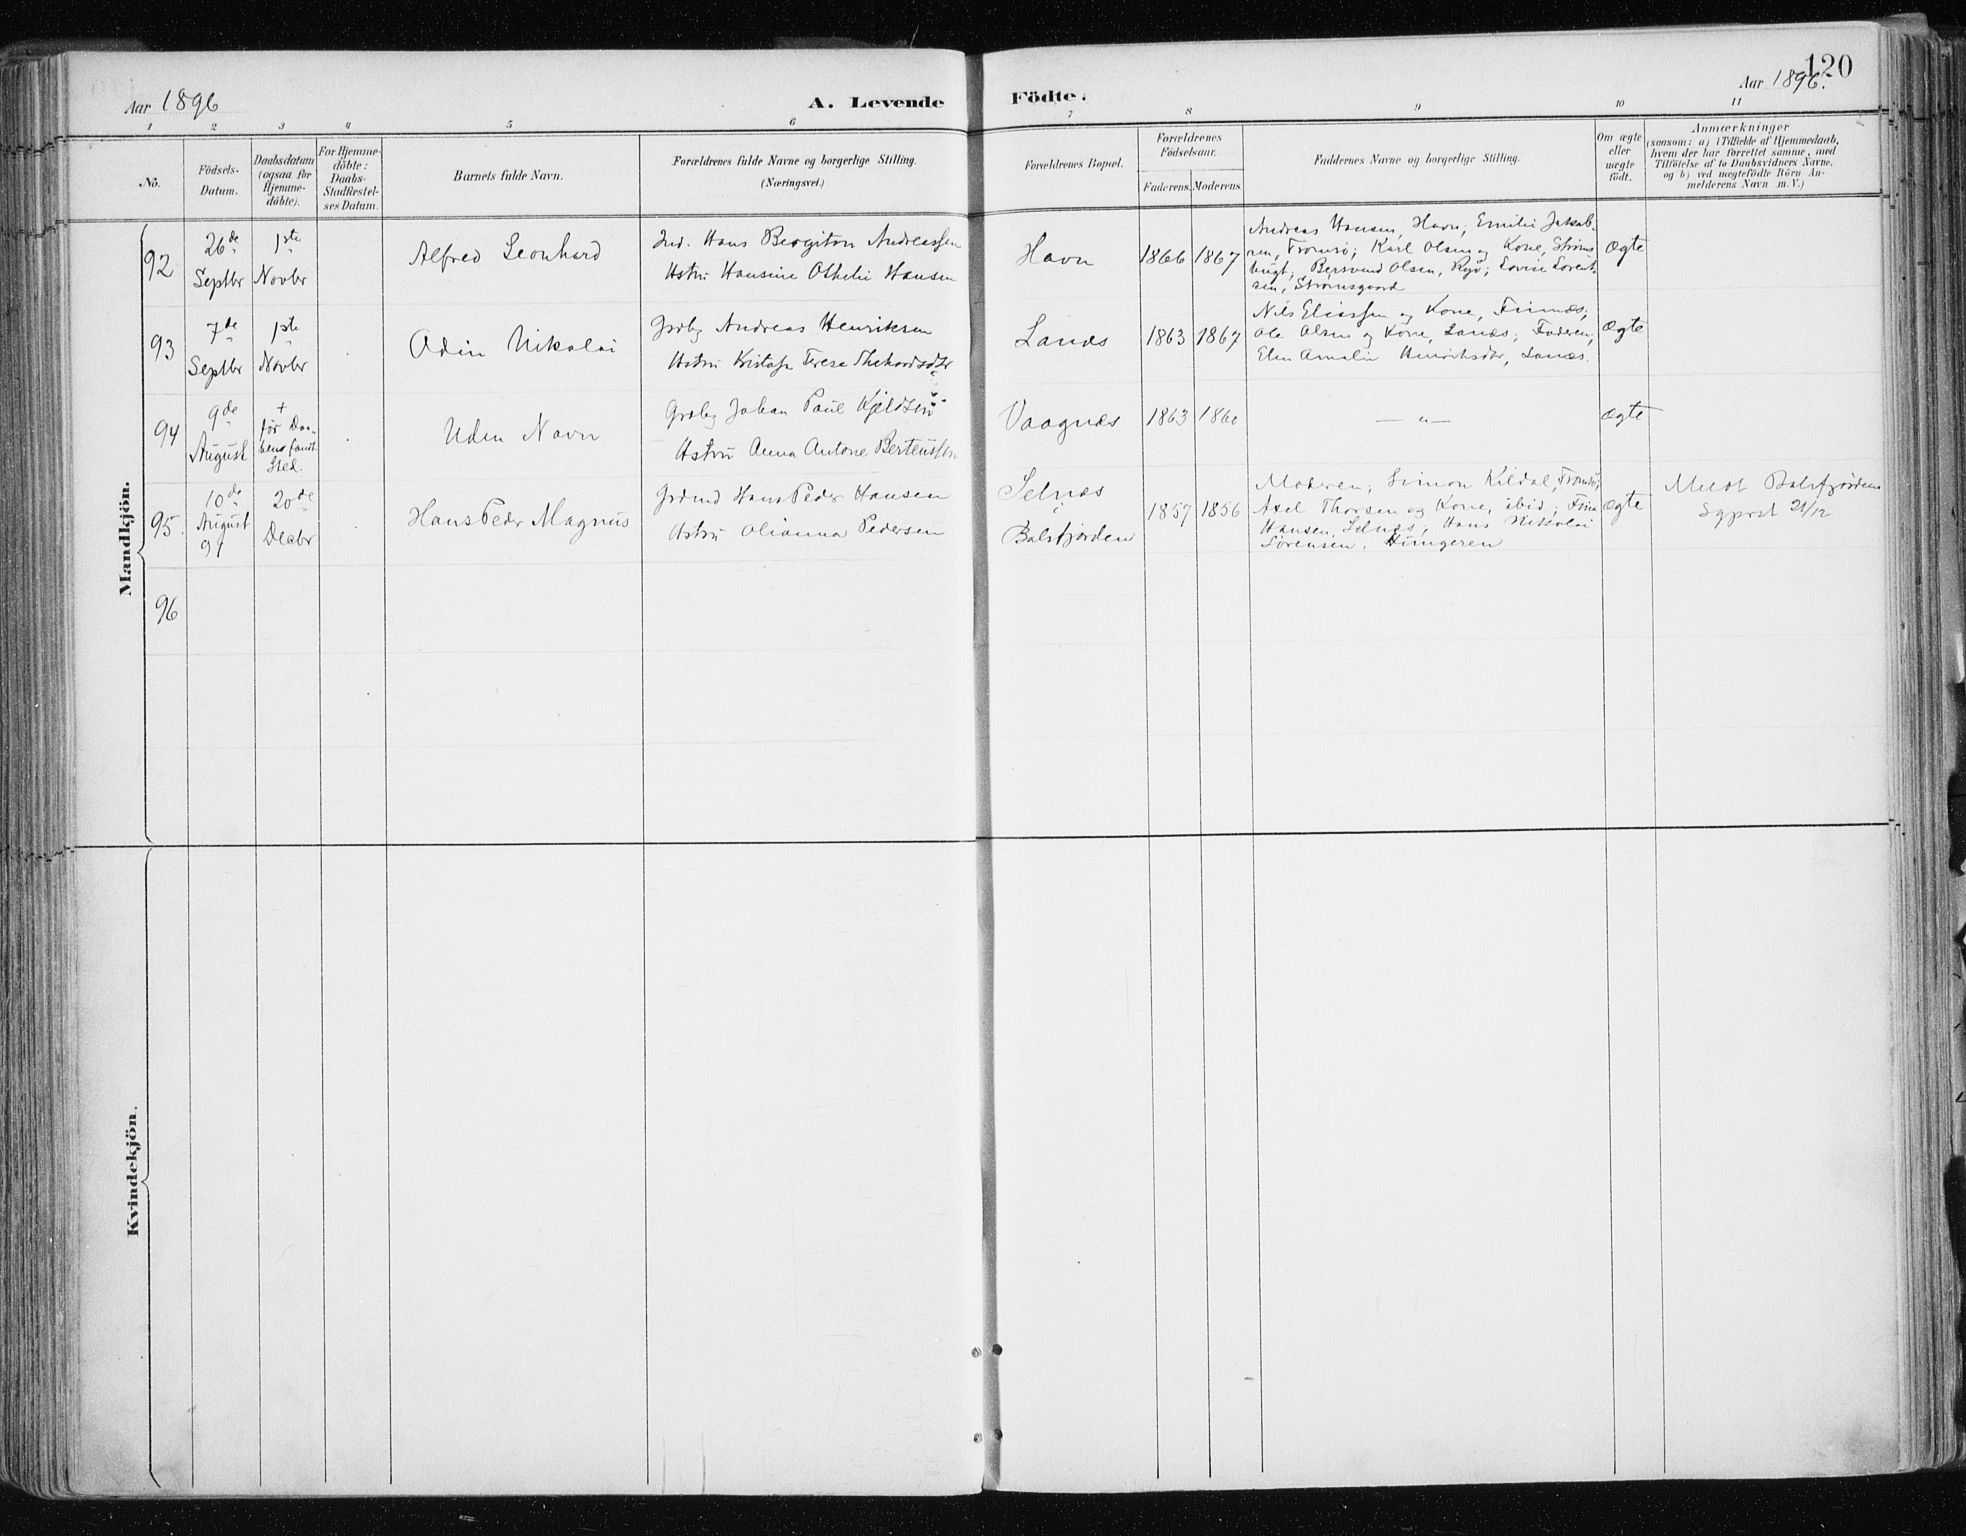 120
Aar 1896
A. Levende
Födte.
Aar 1896.
1 2 3 4 5 6 7 8 9 10 11
No.
Födsels-
Datum.
Daabsdatum
(ogsaa for
Hjemme-
döbte).
For Hjemme-
döbte:
Daabs-
Stadfæstel-
ses Datum.
Barnets fulde Navn.
Forældrenes fulde Navne og borgerlige Stilling.
(Næringsvei.)
Forældrenes Bopæl.
Forældrenes
Födselsaar.
Faderens. Moderens.
Faddernes Navne og borgerlige Stilling.
Om ægte
eller
uægte
födt.
Anmærkninger
(saasom: a) i Tilfælde af Hjemmedaab,
hvem der har forrettet samme, med
Tilföielse af to Daabsvidners Navne,
og b) ved uægtefödte Börn An-
melderens Navn m. V.)
Mandkjön.
92
26de
Septbr
1ste
Novbr
Alfred Leonhard
Ind. Hans Bergiton Andreassen
Hstru Hansine Othelie Hansen
Havn
1866 1867
Andreas Hansen, Havn; Emilie Jakob-
sen, Tromsø; Karl Olsen og Kone, Strøms
bugt; Bersvend Olsen, Ryø; Lovise Lorent-
sen, Strømsgaard
ægte
93
7de
Septbr
1ste
Novbr
Odin Nikolai
Grdbg Andreas Henriksen
Hstru Terese
Lanæs
1863 1867
Nils Eliassen og Kone, Finnæs;
Ole Olsen og Kone, Lanæs; Faderen,
Elen Amalie Henriksdtr, Lanæs.
ægte
94
9de
August
+
før Daa-
bens fandt
Sted.
Uden Navn
Grdbg Johan Paul Kjeldsen
Hstru Anna Antone Bertenssen
Vaagnæs
1863 1860
— „ —
ægte
95.
10de
August
91
20de
Decbr
Hans Peder Magnus
Grdmd Hans Peder Hansen
Hstru Olianna Pedersen
Selnæs
Balsfjorden
1857 1856
Moderen; Simon Kildal, Tromsø;
Axel Thorsen og Kone, ibid; Finn
Hansen, Selnæs; Hans Nikolai
Sørensen, Hungeren
ægte
Meldt Balsfjordens
Sgprst 21/12
96
Kvindekjön.